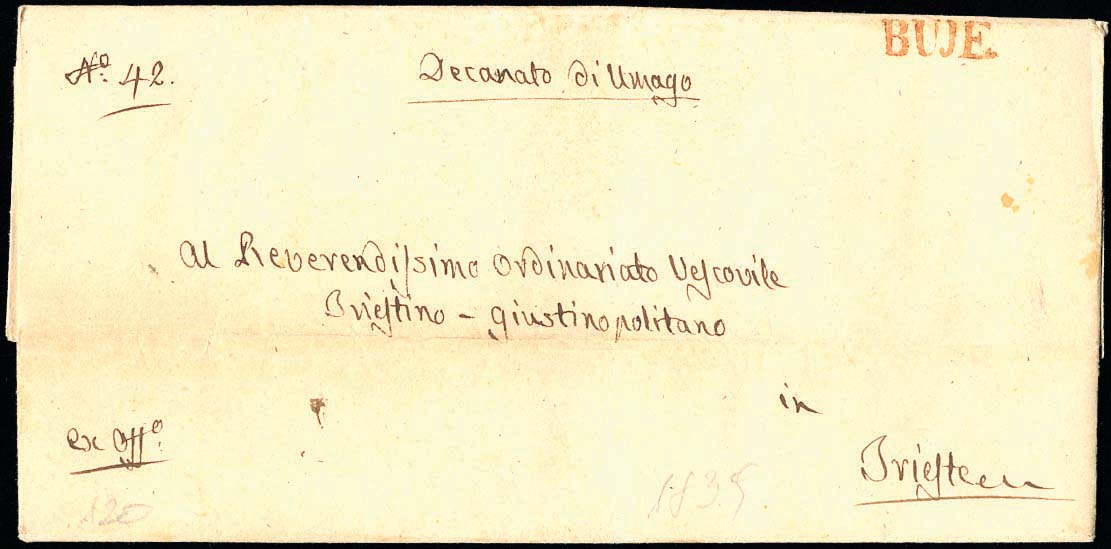 BUJE.
No. 42.
Decanato di Umago
Al Reverendissimo Ordinariato Vescovile
Triestino - giustinopolitano
in
Trieste
ex Offo.
1835
120